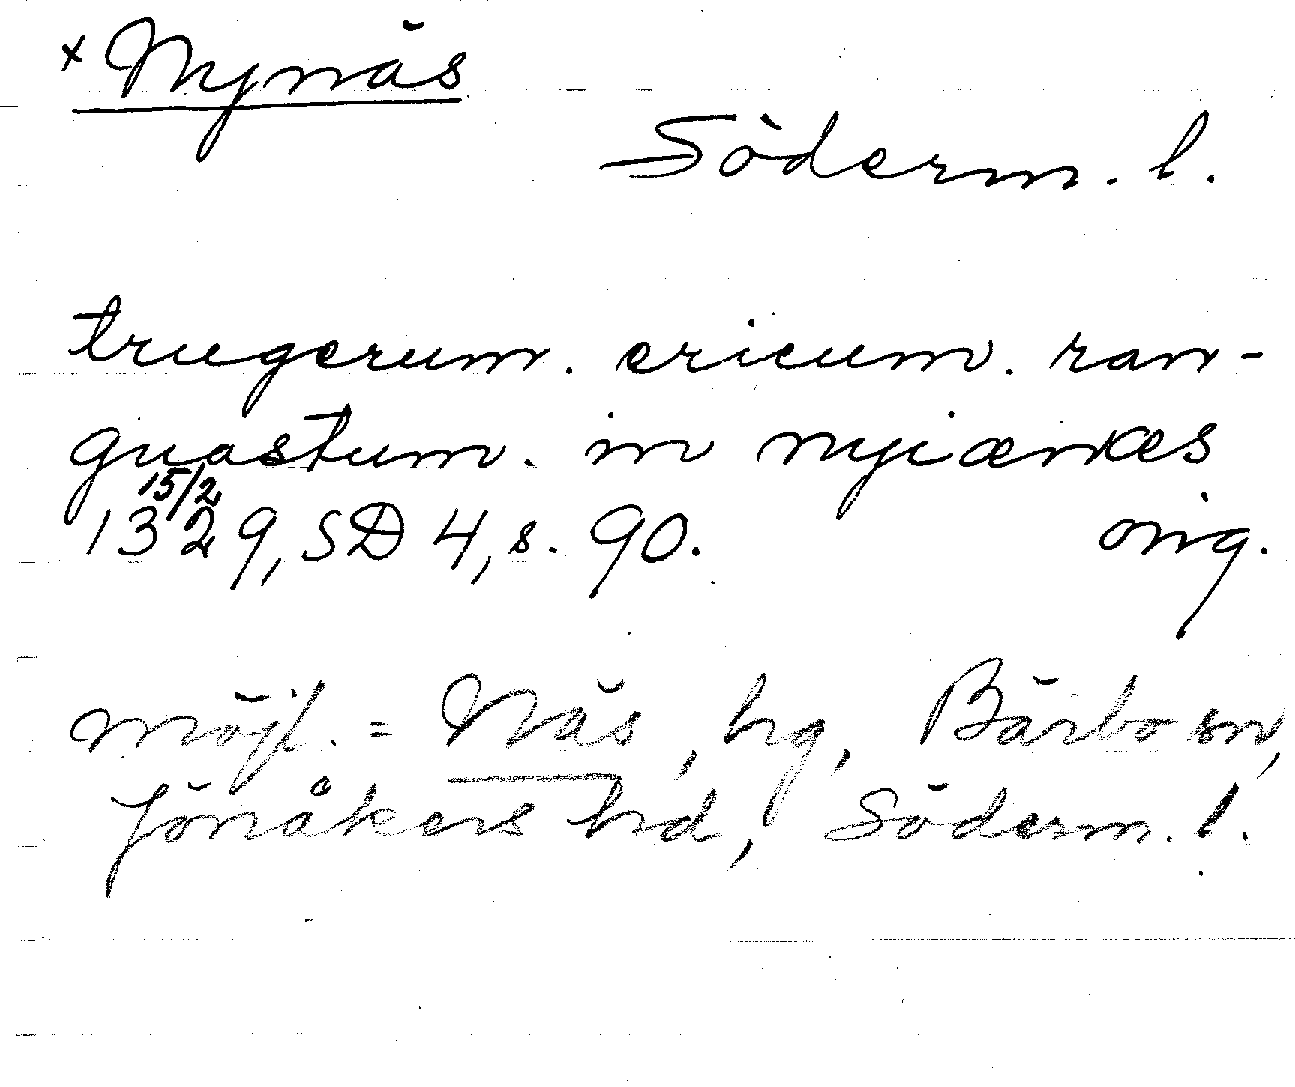 × Nynäs
Söderm. l.
trugerum. ericum. ran-
guastum. in nyiænæs
15/2
1329, SD 4, s. 90. orig.
möjl. = Näs, hg, Bärbo sn,
Jönåkers hd, Söderm. l.